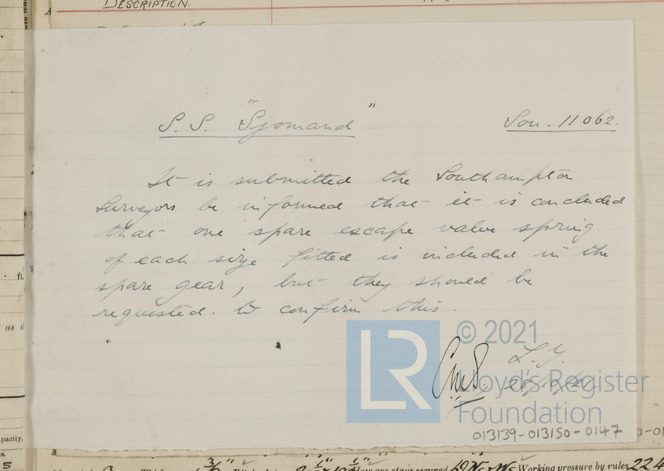 DESCRIPTION.
S.S. "Sjomand"
Sou. 11062.
It is submitted the Southampton
Surveyors be informed that it is concluded
that one spare escape valve spring
of each size fitted is included in the
spare gear, but they should be
requested. to confirm this.
© 2021
LR
L.Y.
Lloyd's Register
Foundation
013139-013150-0147
pacity.
5
Working pressure by rules 22